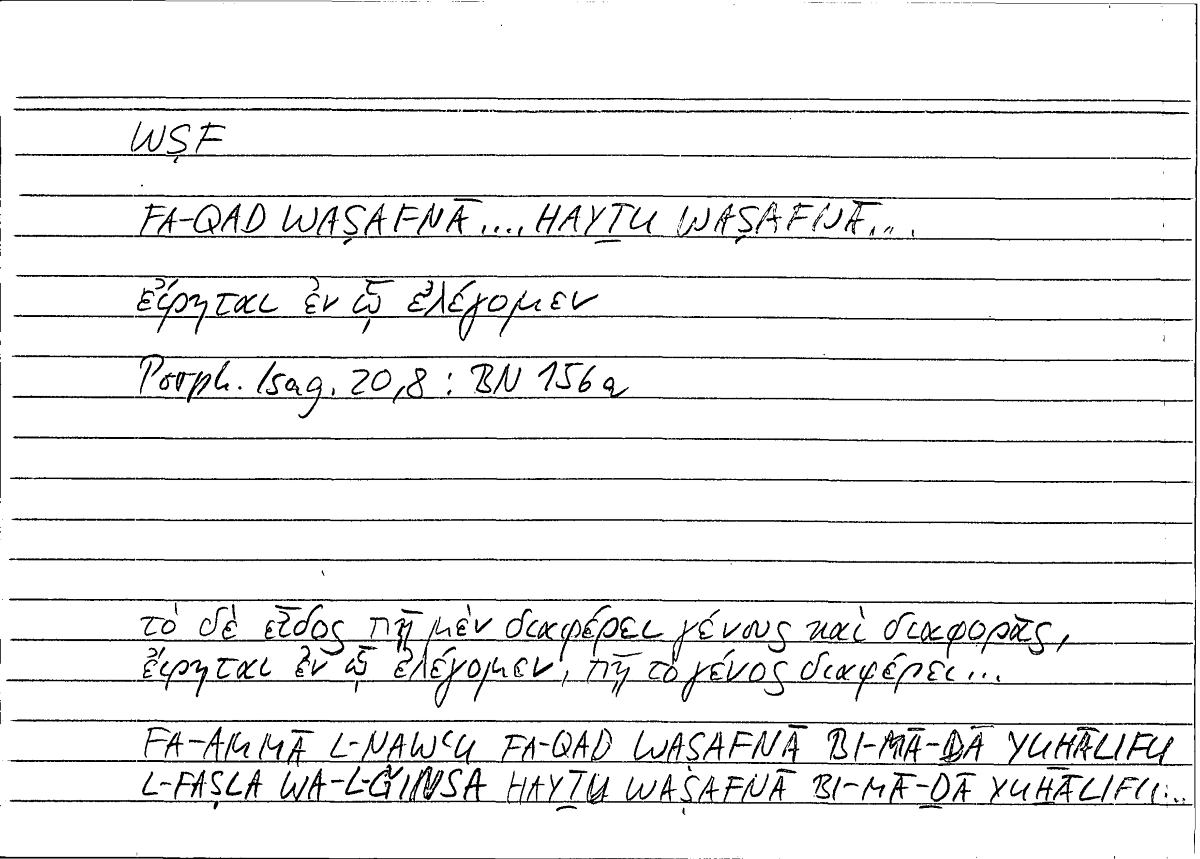 WṢF
FA-QAD WAṢAFNĀ.... HAYṮU WAṢAFNĀ...
εἴρηται ἐν ᾧ ἐλέγομεν
Porph. Isag. 20,8 : BN 156a
τὸ δὲ εἶδος πῇ μὲν διαφέρει γένους καὶ διαφορᾶς,
εἴρηται ἐν ᾧ ἐλέγομεν, πῇ τὸ γένος διαφέρει...
FA-AMMĀ L-NAWʿU FA-QAD WAṢAFNĀ BI-MĀ-ḎĀ YUḪĀLIFU
L-FAṢLA WA-L-ǦINSA HAYṮU WAṢAFNĀ BI-MĀ-ḎĀ YUḪĀLIFU...